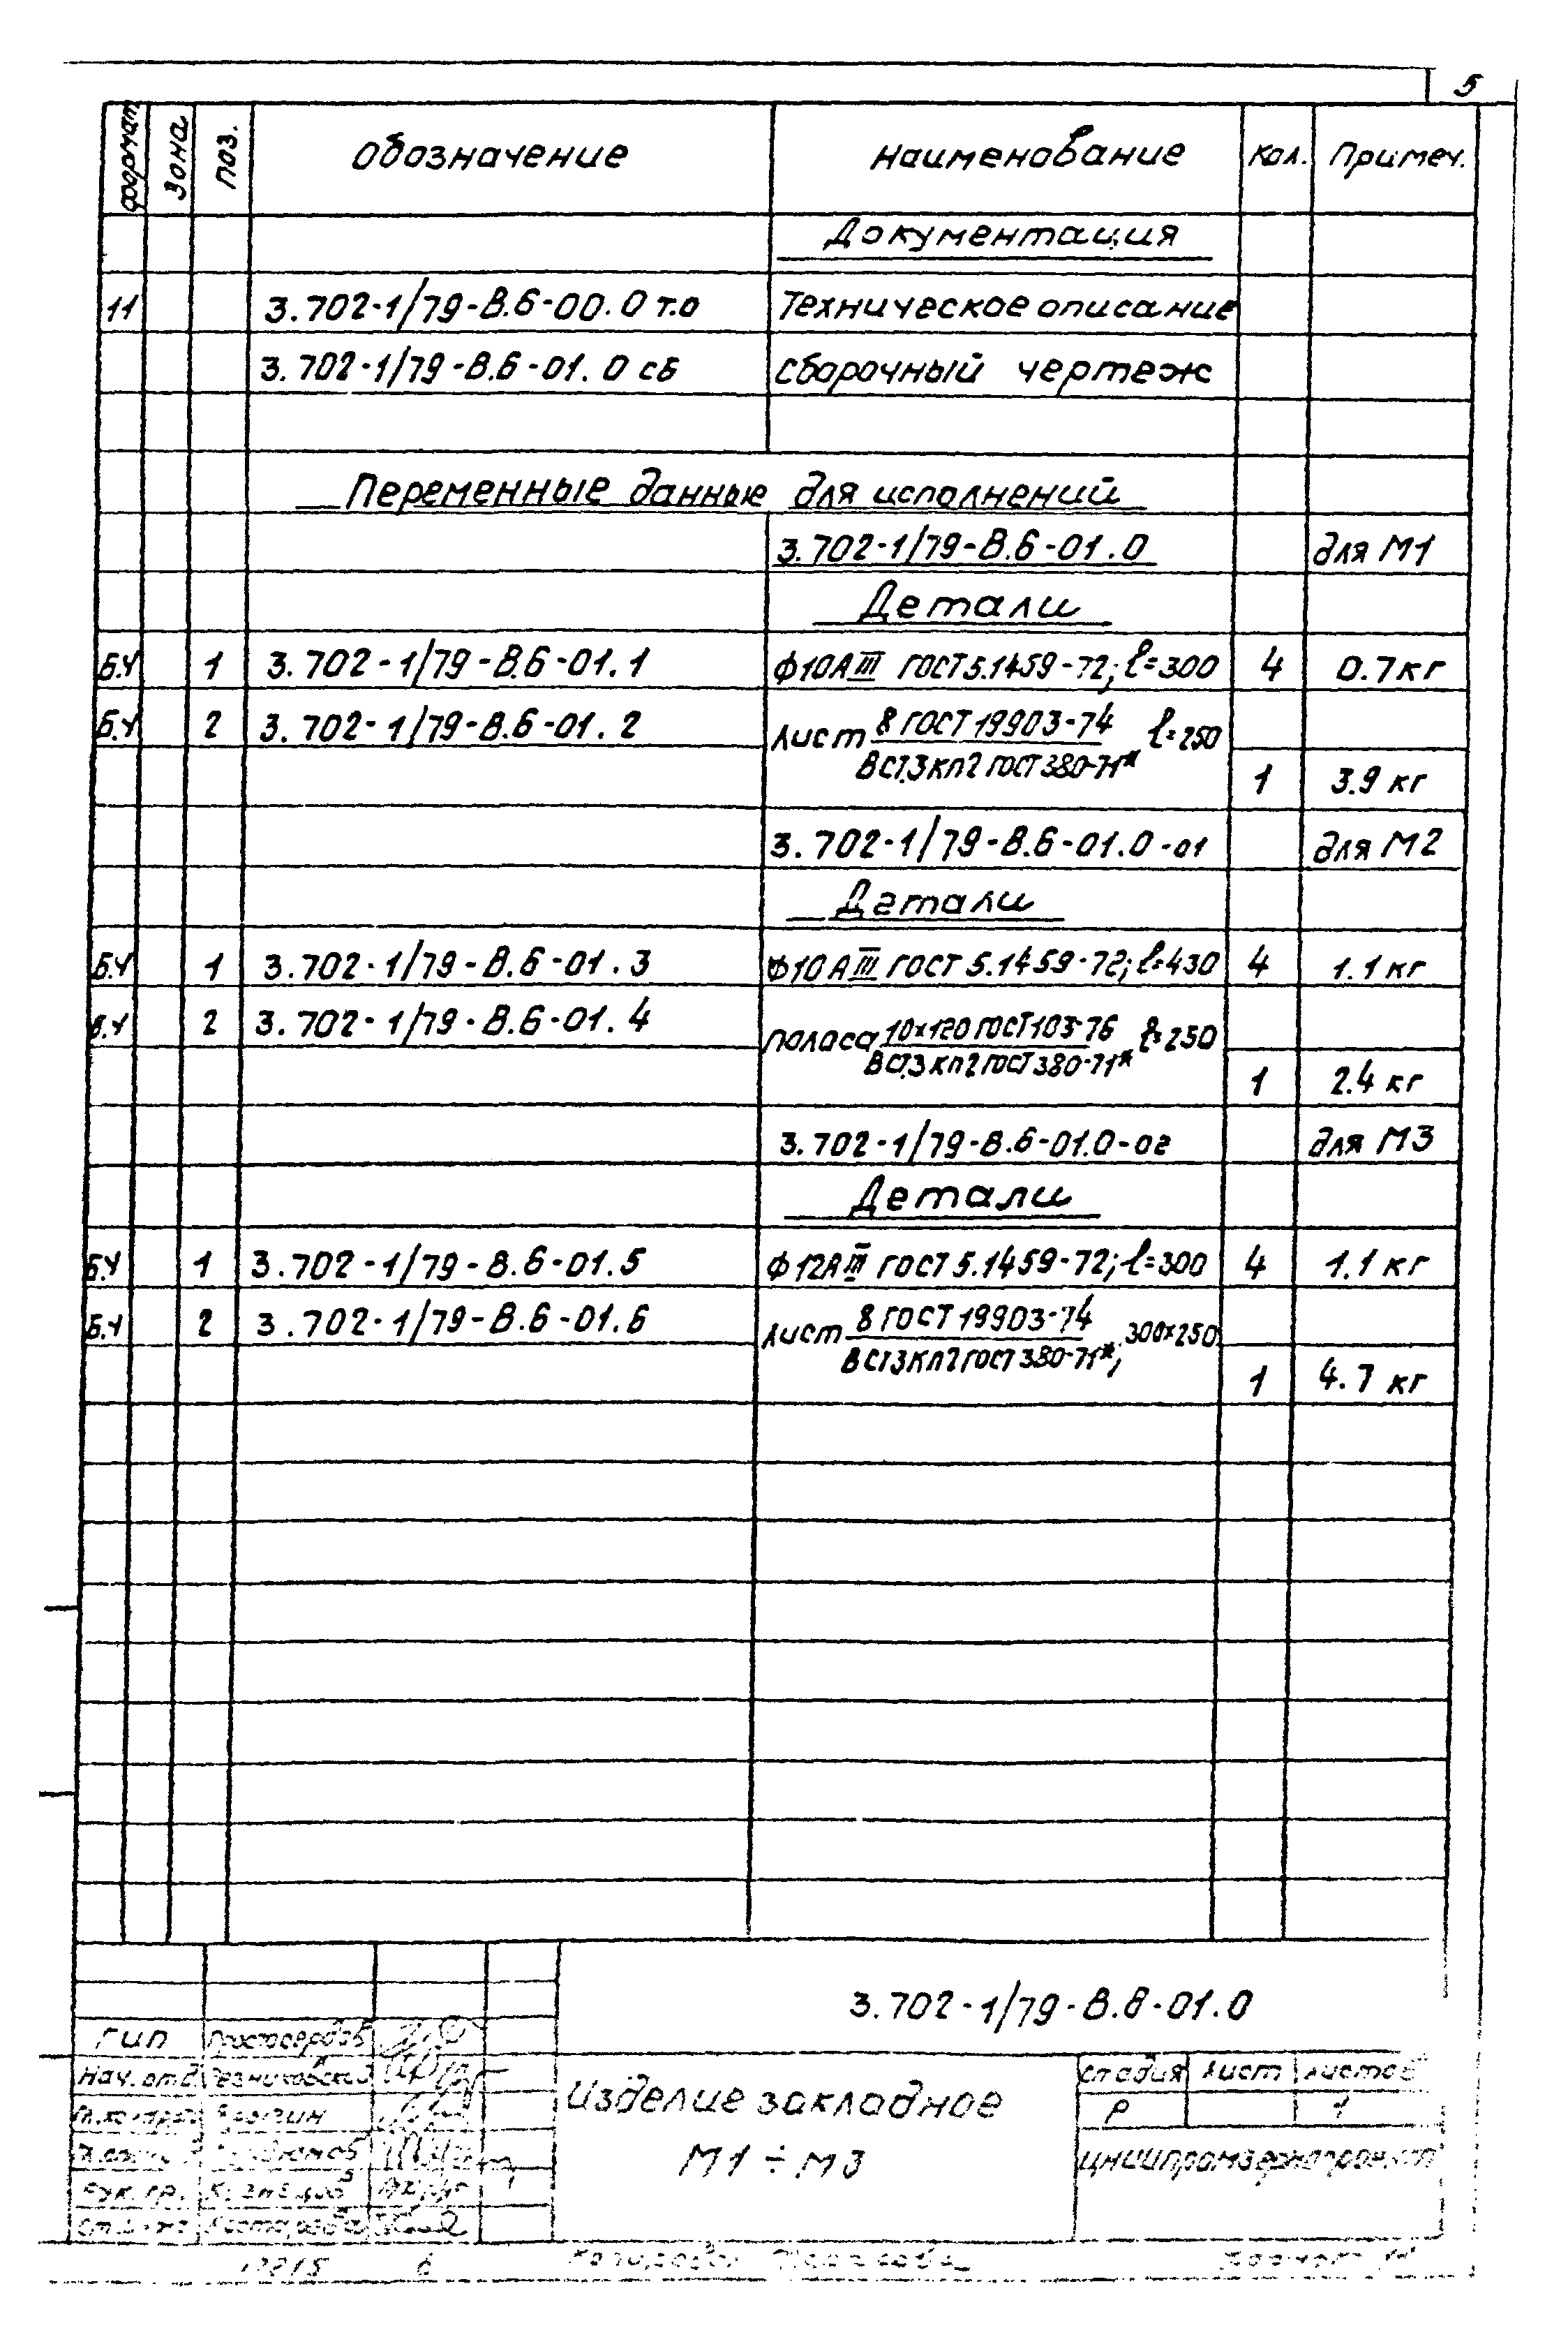 5
формат Зона поз. Обозначение Наименование Кол. Примеч.
Документация
11 3.702-1/79-В.6-00.0 т.о Техническое описание
3.702-1/79-В.6-01.0 сб Сборочный чертеж
Переменные данные для исполнений
3.702-1/79-В.6-01.0 для М1
Детали
Б.Ч 1 3.702-1/79-В.6-01.1 Ф10АIII ГОСТ 5.1459-72; ℓ=300 4 0.7кг
Б.Ч 2 3.702-1/79-В.6-01.2 Лист 8 ГОСТ 19903-74 ℓ=250
ВСт.3кп2 ГОСТ 380-71*
1 3.9 кг
3.702-1/79-В.6-01.0-01 для М2
Детали
Б.Ч 1 3.702-1/79-В.6-01.3 Ф10АIII ГОСТ 5.1459-72; ℓ=430 4 1.1 кг
Б.Ч 2 3.702-1/79-В.6-01.4 Полоса 10х120 ГОСТ 103-76 ℓ=250
ВСт.3кп2 ГОСТ 380-71*
1 2.4 кг
3.702-1/79-В.6-01.0-02 для М3
Детали
Б.Ч 1 3.702-1/79-В.6-01.5 Ф12АIII ГОСТ 5.1459-72; ℓ=300 4 1.1 кг
Б.Ч 2 3.702-1/79-В.6-01.6 Лист 8 ГОСТ 19903-74 300х250
ВСт3кп2 ГОСТ 380-71*;
1 4.7 кг
3.702-1/79-В.6-01.0
ГИП
Нач.отд. Резниковский
Изделие закладное
М1÷М3
Стадия Лист Листов
Р 1
ЦНИИпромзернопроект
Рук.гр. Кузнецов
Копировал
Формат 11